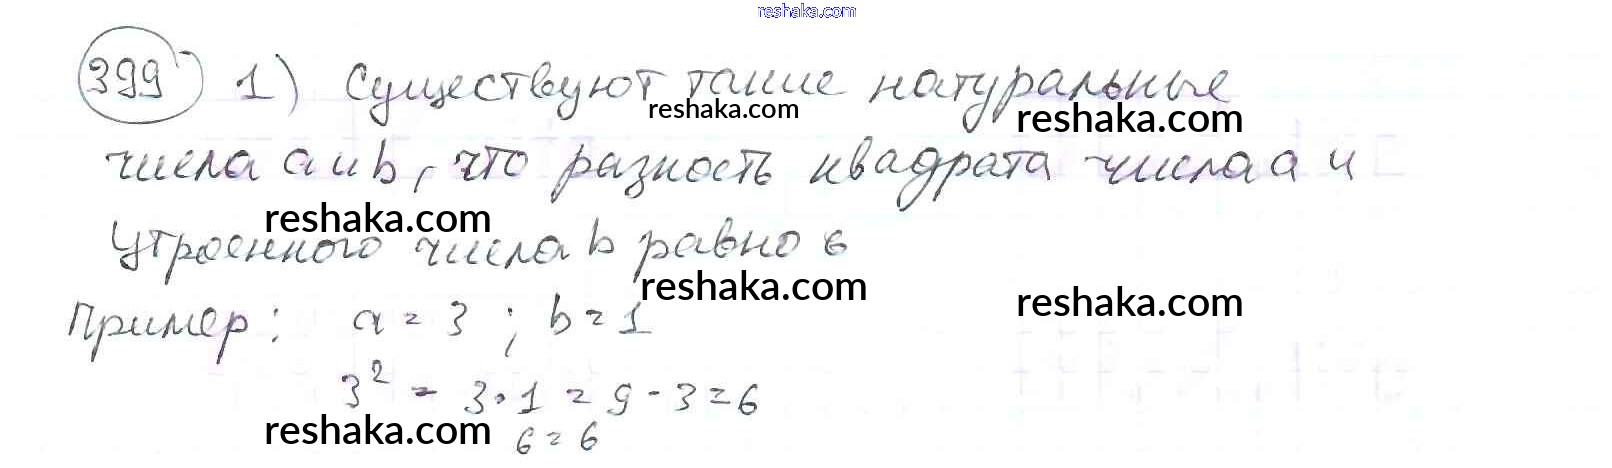 reshaka.com
399 1) Существуют такие натуральные
reshaka.com reshaka.com
числа a и b, что разность квадрата числа a и
reshaka.com
утроенного числа b равно 6
reshaka.com reshaka.com
Пример: a = 3 ; b = 1
3² - 3·1 = 9 - 3 = 6
reshaka.com 6 = 6